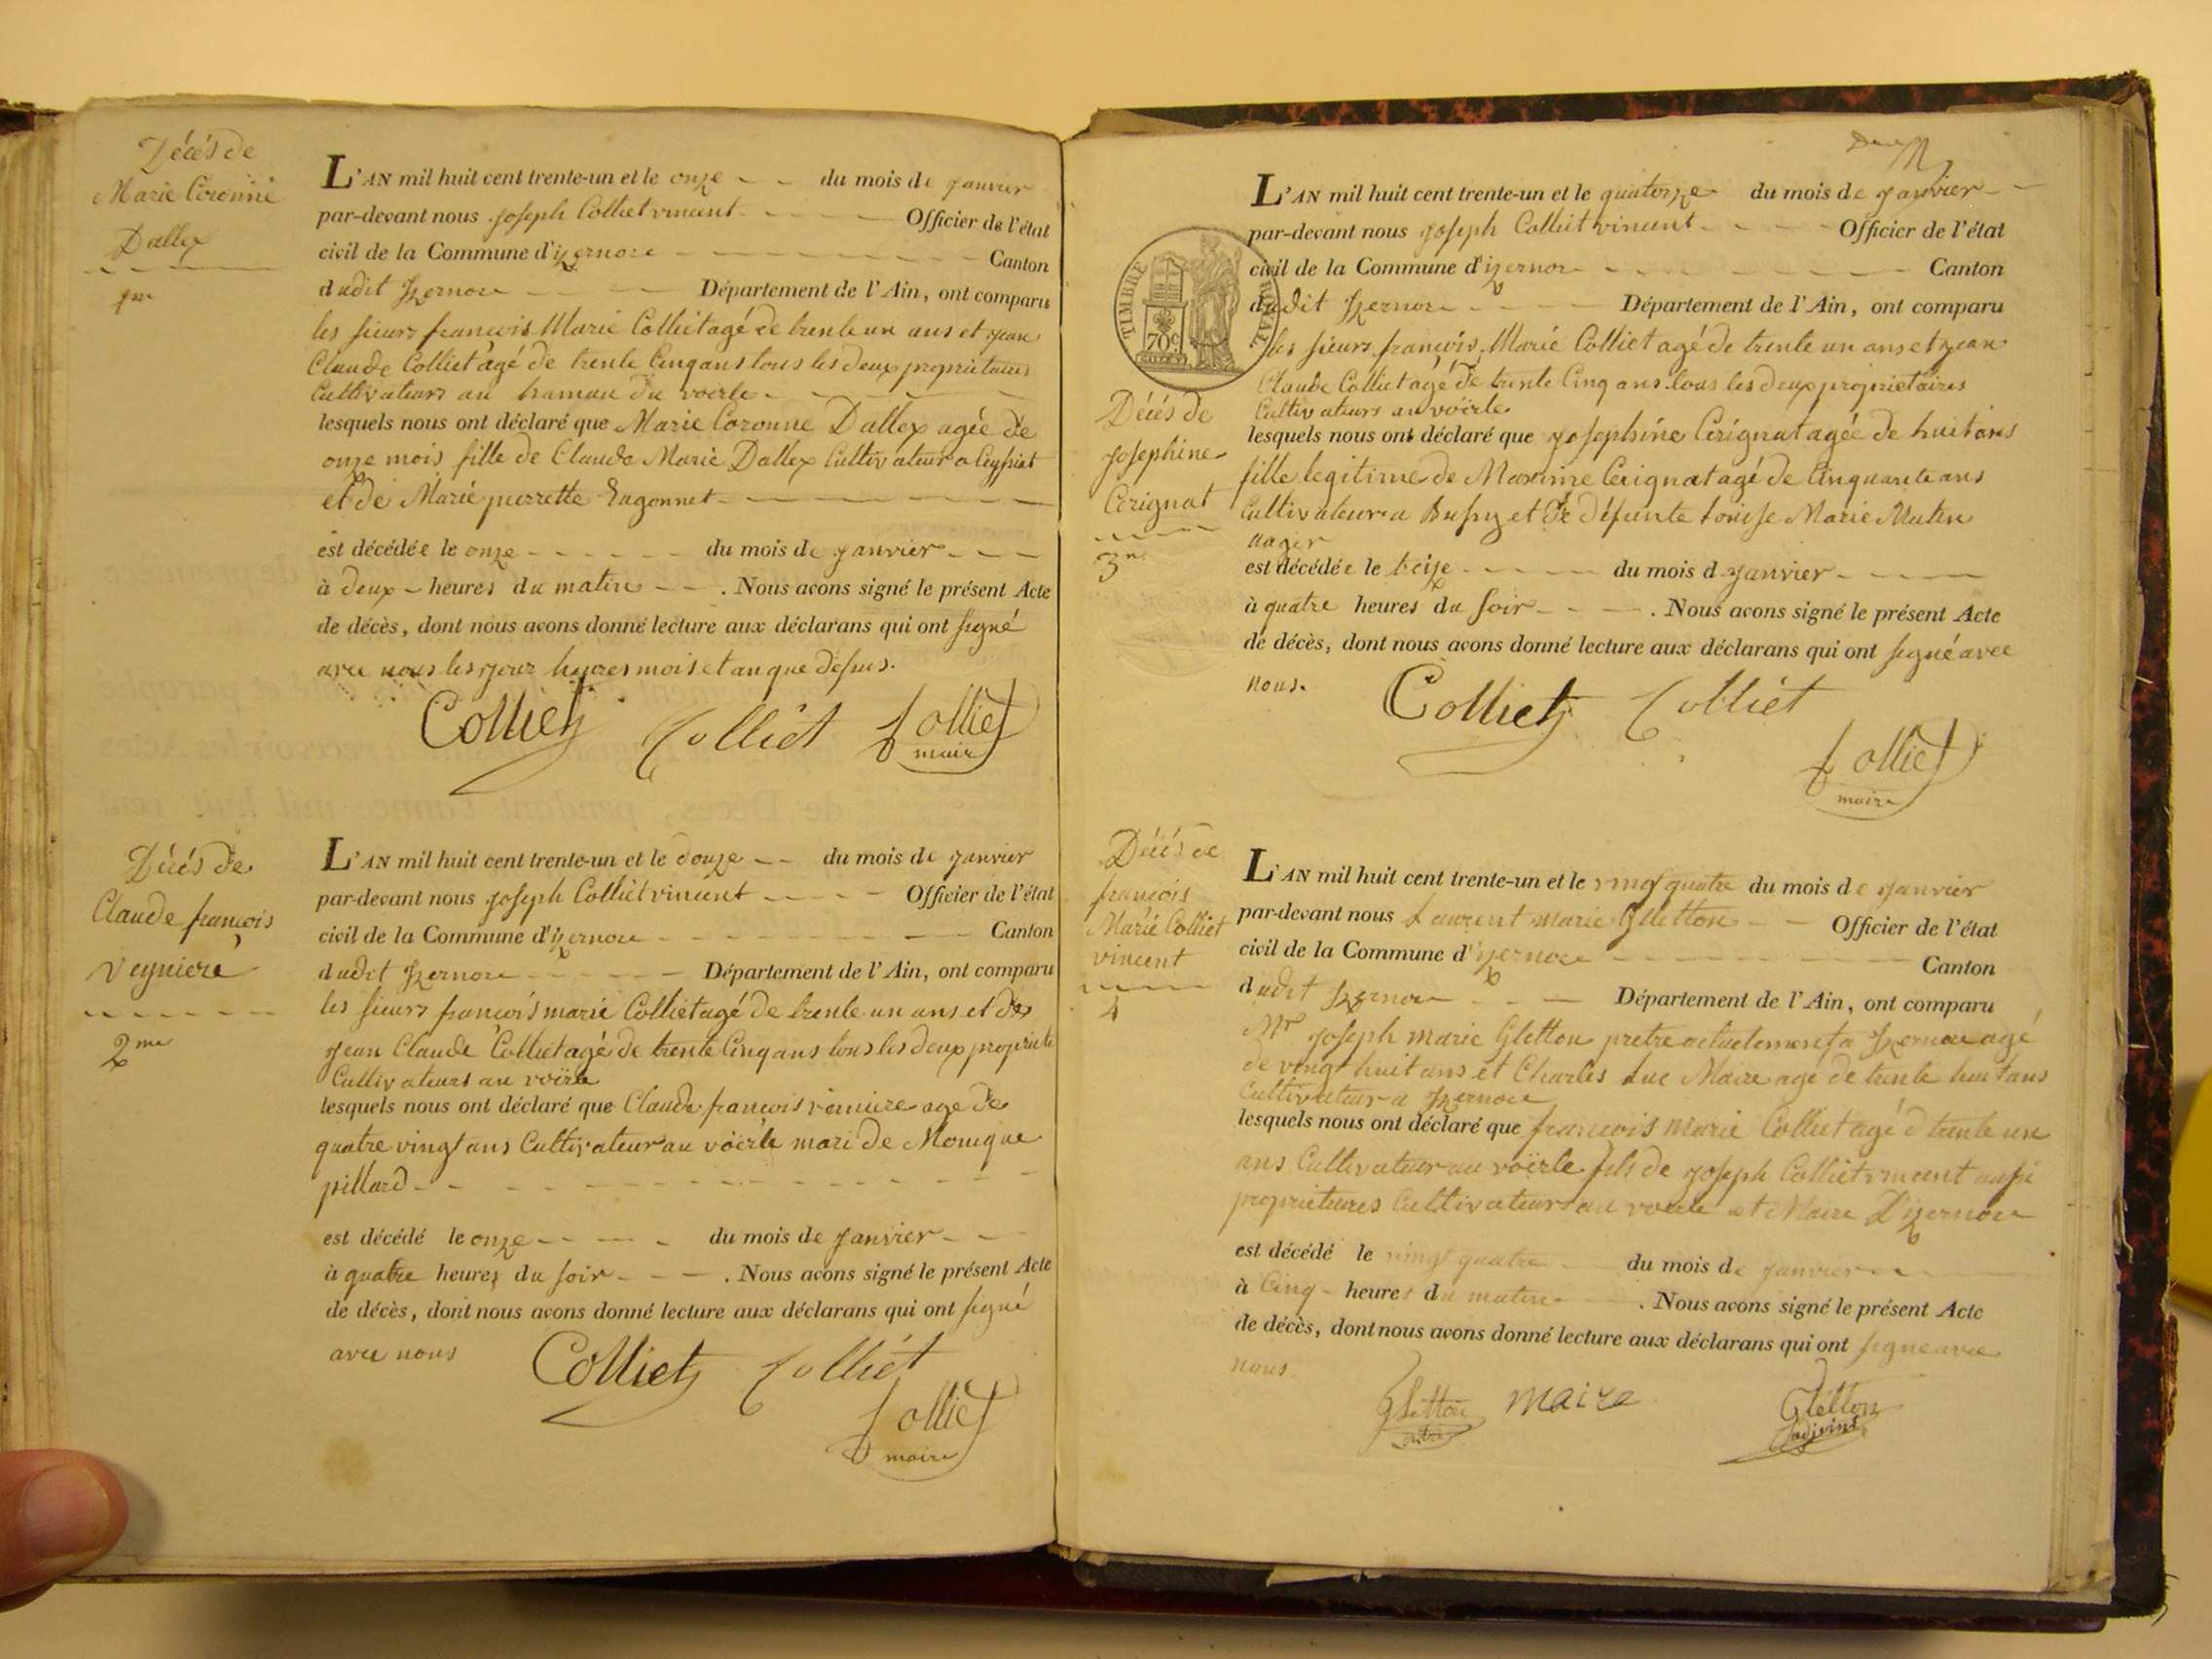 Décés de
Marie Coronne
Dallex
1re
L'AN mil huit cent trente-un et le onze du mois de janvier
par-devant nous Joseph Colliet vincent Officier de l'état
civil de la Commune d'izernore Canton
dudit Izernore Département de l'Ain, ont comparu
les sieurs françois Marie Colliet agé de trente un ans et jean
Claude Colliet agé de trente Cinq ans tous les deux proprietaires
Cultivateurs au hameau du voerle
lesquels nous ont déclaré que Marie Coronne Dallex agée de
onze mois fille de Claude Marie Dallex Cultivateur a Ceyssiat
et de Marie pierrette
est décédée le onze du mois de janvier
à deux heures du matin . Nous avons signé le présent Acte
de décès, dont nous avons donné lecture aux déclarans qui ont signé
avec nous les jour heures mois et an que dessus.
Colliet Colliet Colliet
maire
Décés de
Claude françois
Veyniere
2me
L'AN mil huit cent trente-un et le douze du mois de janvier
par-devant nous Joseph Colliet vincent Officier de l'état
civil de la Commune d'izernore Canton
dudit Izernore Département de l'Ain, ont comparu
les sieurs françois marie Colliet agé de trente un ans et de
jean Claude Colliet agé de trente Cinq ans tous les deux propriete
Cultivateurs au voërle
lesquels nous ont déclaré que Claude françois agé de
quatre vingt ans Cultivateur au voërle mari de Monique
pillard
est décédé le onze du mois de janvier
à quatre heures du soir . Nous avons signé le présent Acte
de décès, dont nous avons donné lecture aux déclarans qui ont signé
avec nous
Colliet Colliet
Colliet
maire
L'AN mil huit cent trente-un et le quatorze du mois de janvier
par-devant nous joseph Colliet vincent Officier de l'état
civil de la Commune d'izernore Canton
dudit Izernore Département de l'Ain, ont comparu
TIMBRE ROYAL
70c
les sieurs françois Marie Colliet agé de trente un ans et jean
Claude Colliet agé de trente Cinq ans tous les deux proprietaires
Cultivateurs au voërle
Décés de
Josephine
Cerignat
3me
lesquels nous ont déclaré que josephine Cerignat agée de huit ans
fille legitime de Maxime Cerignat agé de Cinquante ans
Cultivateur a Bussy et de défunte Marie
est décédée le treize du mois d janvier
à quatre heures du soir . Nous avons signé le présent Acte
de décès, dont nous avons donné lecture aux déclarans qui ont signé avec
nous.
Colliet Colliet
Colliet
maire
Décés de
françois
Marie Colliet
vincent
4
L'AN mil huit cent trente-un et le vingt quatre du mois de janvier
par-devant nous Laurent marie Gletton Officier de l'état
civil de la Commune d'izernore Canton
dudit Izernore Département de l'Ain, ont comparu
Mr joseph marie Gletton pretre actuelement a Izernore agé
de vingt huit ans et Charles Luc Maire agé de trente huit ans
Cultivateur a Izernore
lesquels nous ont déclaré que françois marie Colliet agé d trente un
ans Cultivateur au voërle fils de joseph Colliet vincent aussi
proprietaires Cultivateurs au voerle et Maire D'izernore
est décédé le vingt quatre du mois de janvier
à Cinq heures du matin . Nous avons signé le présent Acte
de décès, dont nous avons donné lecture aux déclarans qui ont signe avec
nous
Gletton maire Gletton
adjoint